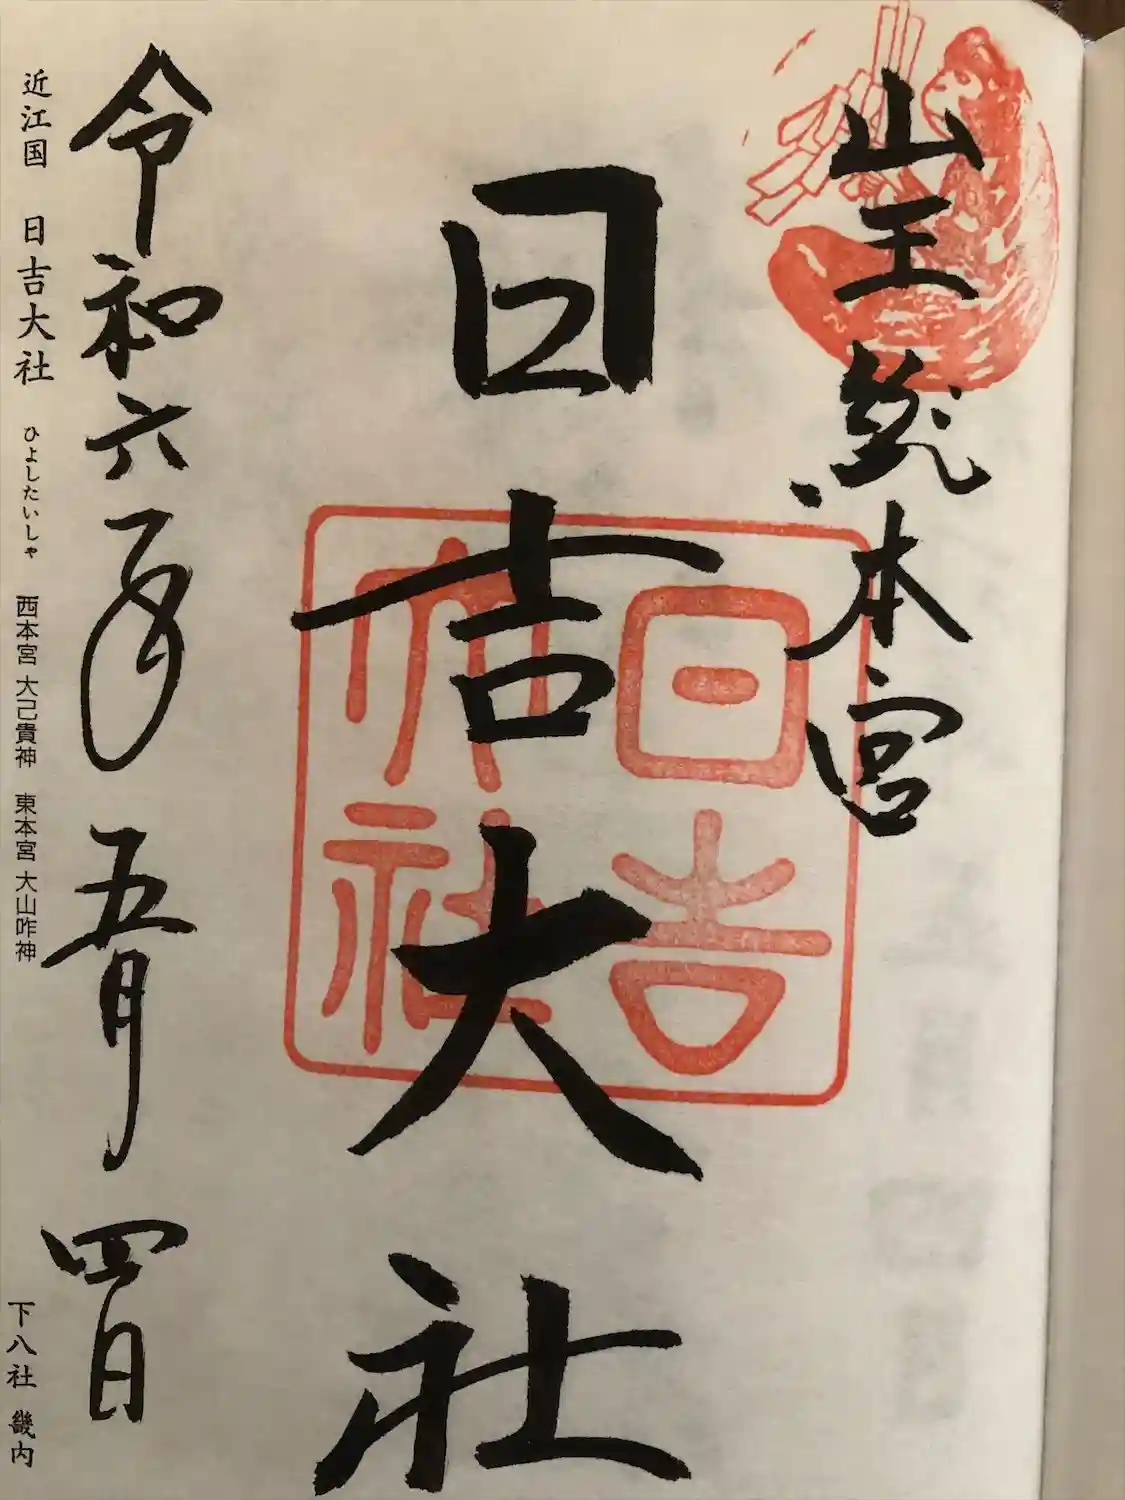 山王総本宮
日吉大社
日吉大社
令和六年五月四日
近江国 日吉大社 ひよしたいしゃ 西本宮 大己貴神 東本宮 大山咋神 下八社 畿内